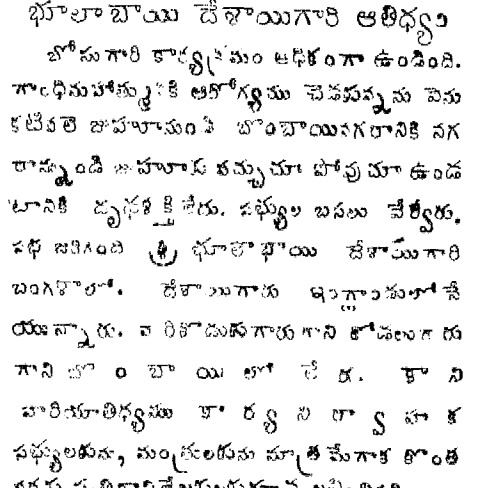 భూలాబాయి దేశాయిగారి ఆతిధ్యం
బోసుగారి కార్యక్రమం అధికంగా ఉండింది.
గాంధిమహాత్మునికి ఆరోగ్యము చెడుచున్నను వెను
జుహూనుంచి బొంబాయినగరానికి నగ
రాన్నుండి జుహూకు వచ్చుచూ పోవుచూ ఉండ
టానికి దృఢశక్తి లేదు. సభ్యుల బసలు వేర్వేరు.
సభ జరిగింది శ్రీ భూలాభాయి దేశాయిగారి
బంగళాలో. దేశాయిగారు ఇంగ్లాండులోనే
యున్నారు. వారికొడుకుగారుగాని కోడలుగారు
గాని బొంబాయిలో లేరు. కాని
వారియాతిధ్యము కార్యనిర్వాహక
సభ్యులకును, మంత్రులకును మాత్రమేగాక కొంత